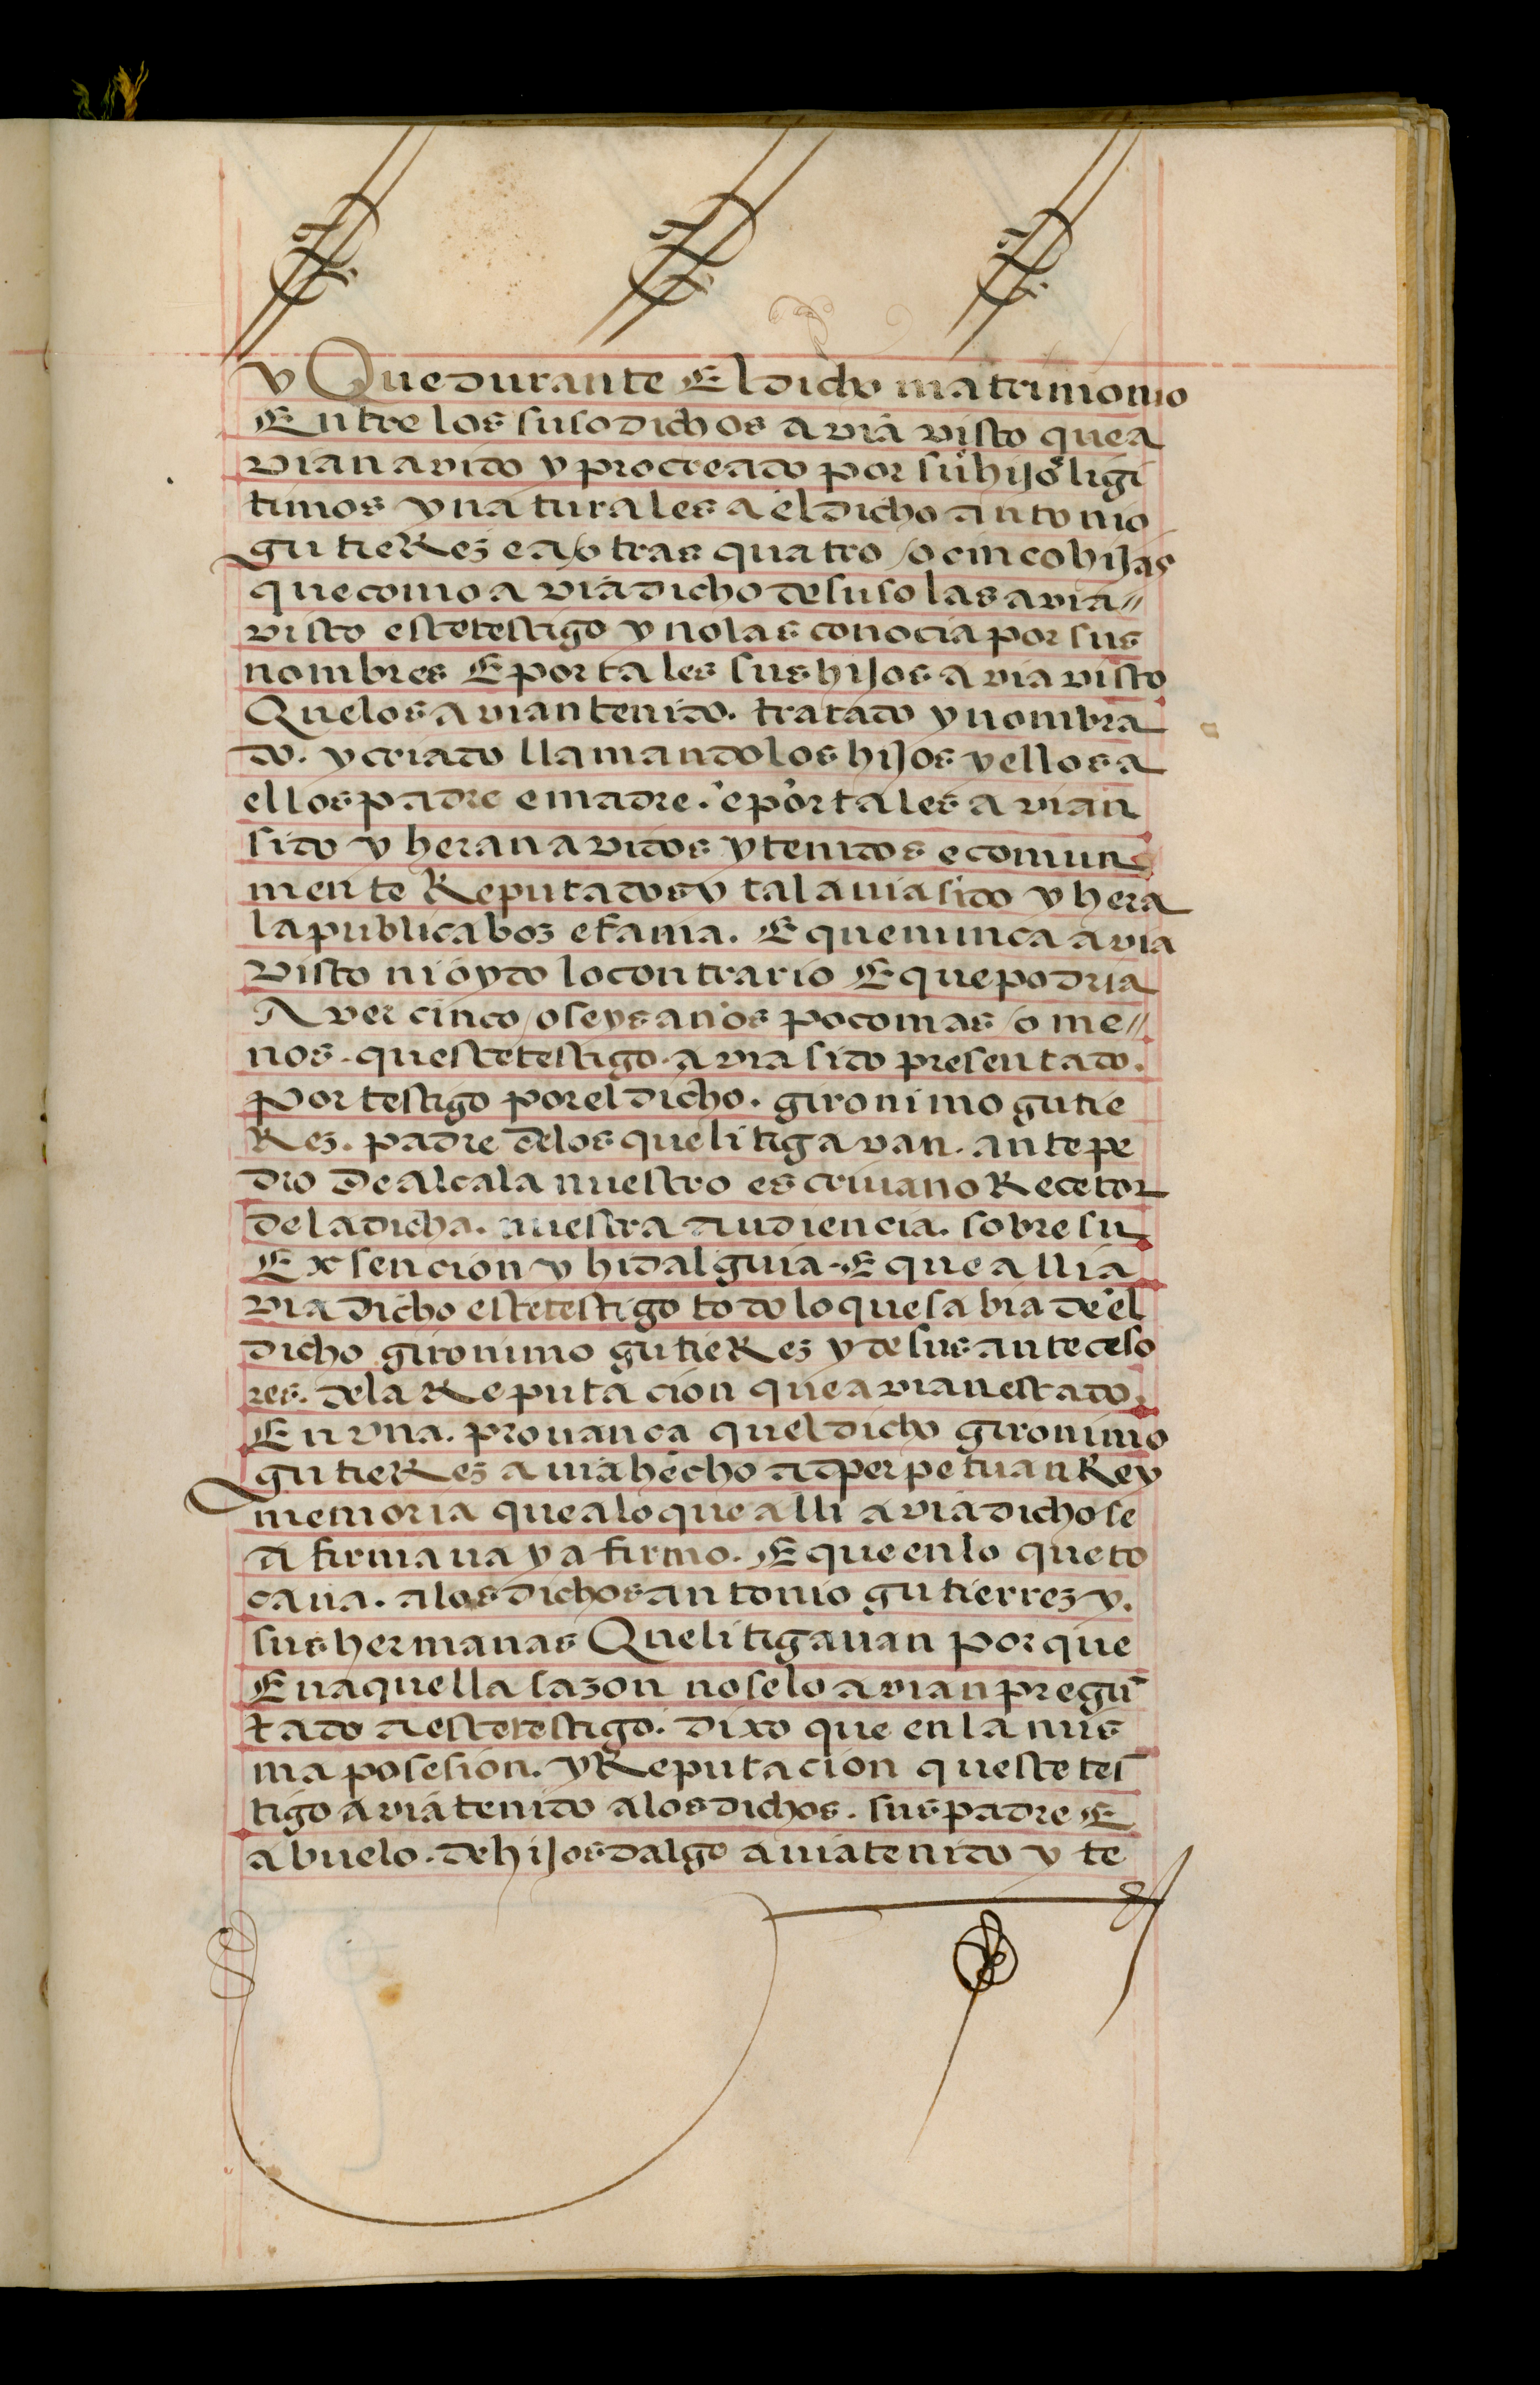 y Que durante El dicho matrimonio
Entre los susodichos avia visto que a
vian avido y procreado por su hijo ligi
timos y naturales a el dicho antonio
gutieRez e a otras quatro o cinco hijas
que como avia dicho de suso las avia//
visto este testigo y no las conocia por sus
nombres E por tales sus hijos avia visto
Que los avian tenido. tratado y nombra
do. y criado llamandolos hijos y ellos a
ellos padre e madre. e por tales avian
sido y heran avidos y tenidos e comun
mente Reputados y tal auia sido y hera
la publica boz e fama. E que nunca avia
visto ni oydo lo contrario E que podria
Aver cinco o seys años poco mas o me//
nos. queste testigo. avia sido presentado.
por testigo por el dicho. gironimo gutie
Rez. padre de los que litigavan. ante pe
dro De alcala nuestro escriuano Recetor
de la dicha. nuestra audiencia. sobre su
Exsencion y hidalguia. E que alli a
via dicho este testigo todo lo que sabia de el
dicho gironimo gutieRez y de sus anteceso
res. de la Reputacion que avian estado.
En vna. prouança quel dicho gironimo
gutieRez auia hecho ad perpetuan Rey
memoria que a lo que alli avia dicho se
afirmaua y afirmo. E que en lo que to
caua. a los dichos antonio gutierrez y.
sus hermanas Que litigauan porque
En aquella sazon no se lo avian pregū
tado a este testigo. dixo que en la mis
ma posesion. y Reputacion queste tes
tigo avia tenido a los dichos. sus padre E
abuelo. de hijosdalgo auia tenido y te